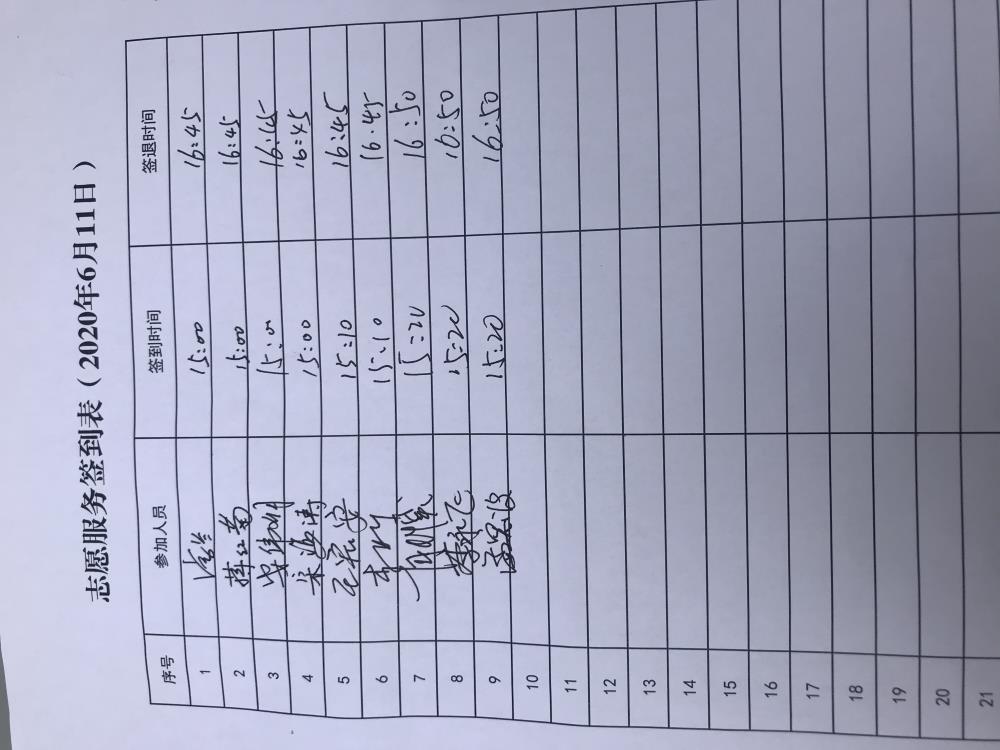 志愿服务签到表（2020年6月11日）
序号 参加人员 签到时间 签退时间
1 15:00 16:45
2 15:00 16:45
3 15:00 16:45
4 宋海涛 15:00 16:45
5 15:10 16:45
6 15:10 16:45
7 15:20 16:50
8 15:20 16:50
9 15:20 16:50
10
11
12
13
14
15
16
17
18
19
20
21